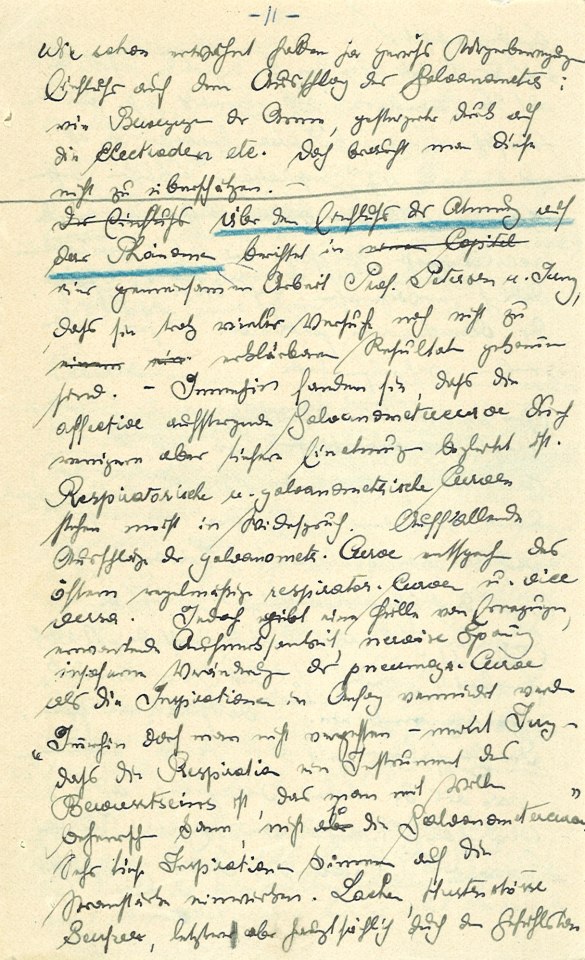 - 11 -
Wie schon erwähnt haben ja gewiss Körperbewegungen
Einfluss auf den Ausschlag des Galvanometers:
wie Bewegung der Arme, gesteigerter Druck auf
die Electroden etc. Doch braucht man diese
nicht zu überschätzen. —
Der Einfluss über den Einfluss der Atmung auf
das Phänomen berichtet in einem Capitel
einer gemeinsamen Arbeit Prof. Peterson u. Jung,
dass sie trotz vieler Versuche noch nicht zu
einem erklärbaren Resultat gekommen
sind. — Immerhin fanden sie, dass die
affective aufsteigende Galvanometercurve durch
weniger aber tiefere Einatmung begleitet ist.
Respiratorische u. galvanometrische Curven
stehen meist in Widerspruch. Auffallende
Ausschläge der galvanometr. Curve entsprechen des
öftern regelmässige respirator. Curven u. vice
versa. Jedoch gibt eine Fülle von Erregungen,
erwartende Aufmerksamkeit, nervöse Spannung
insofern Veränderung der pneumogr. Curve
als die Inspirationen in Anfang vermindert werden
"Immerhin darf man nicht vergessen — meint Jung —
dass die Respiration ein Instrument des
Bewusstseins ist, das man mit Willen
beherrschen kann, nicht aber die Galvanometercurve"
Sehr tiefe Inspirationen können auf die
Stromstärke einwirken. Lachen, Hustenstösse
Seufzer, letztere aber hauptsächlich durch den Gefühlston